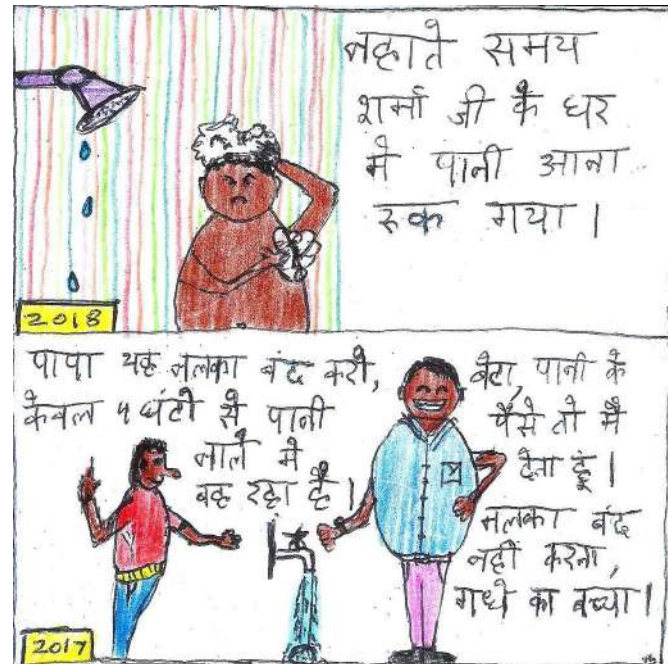 नहाते समय
शर्मा जी के घर
मे पानी आना
रुक गया।
2018
पापा यह नलका बंद करो,
केवल ५ घंटो से पानी
नाले मे
बह रहा है।
बेटा, पानी के
पैसे तो मै
देता हूं।
नलका बंद
नहीं करना,
गधे का बच्चा।
2017